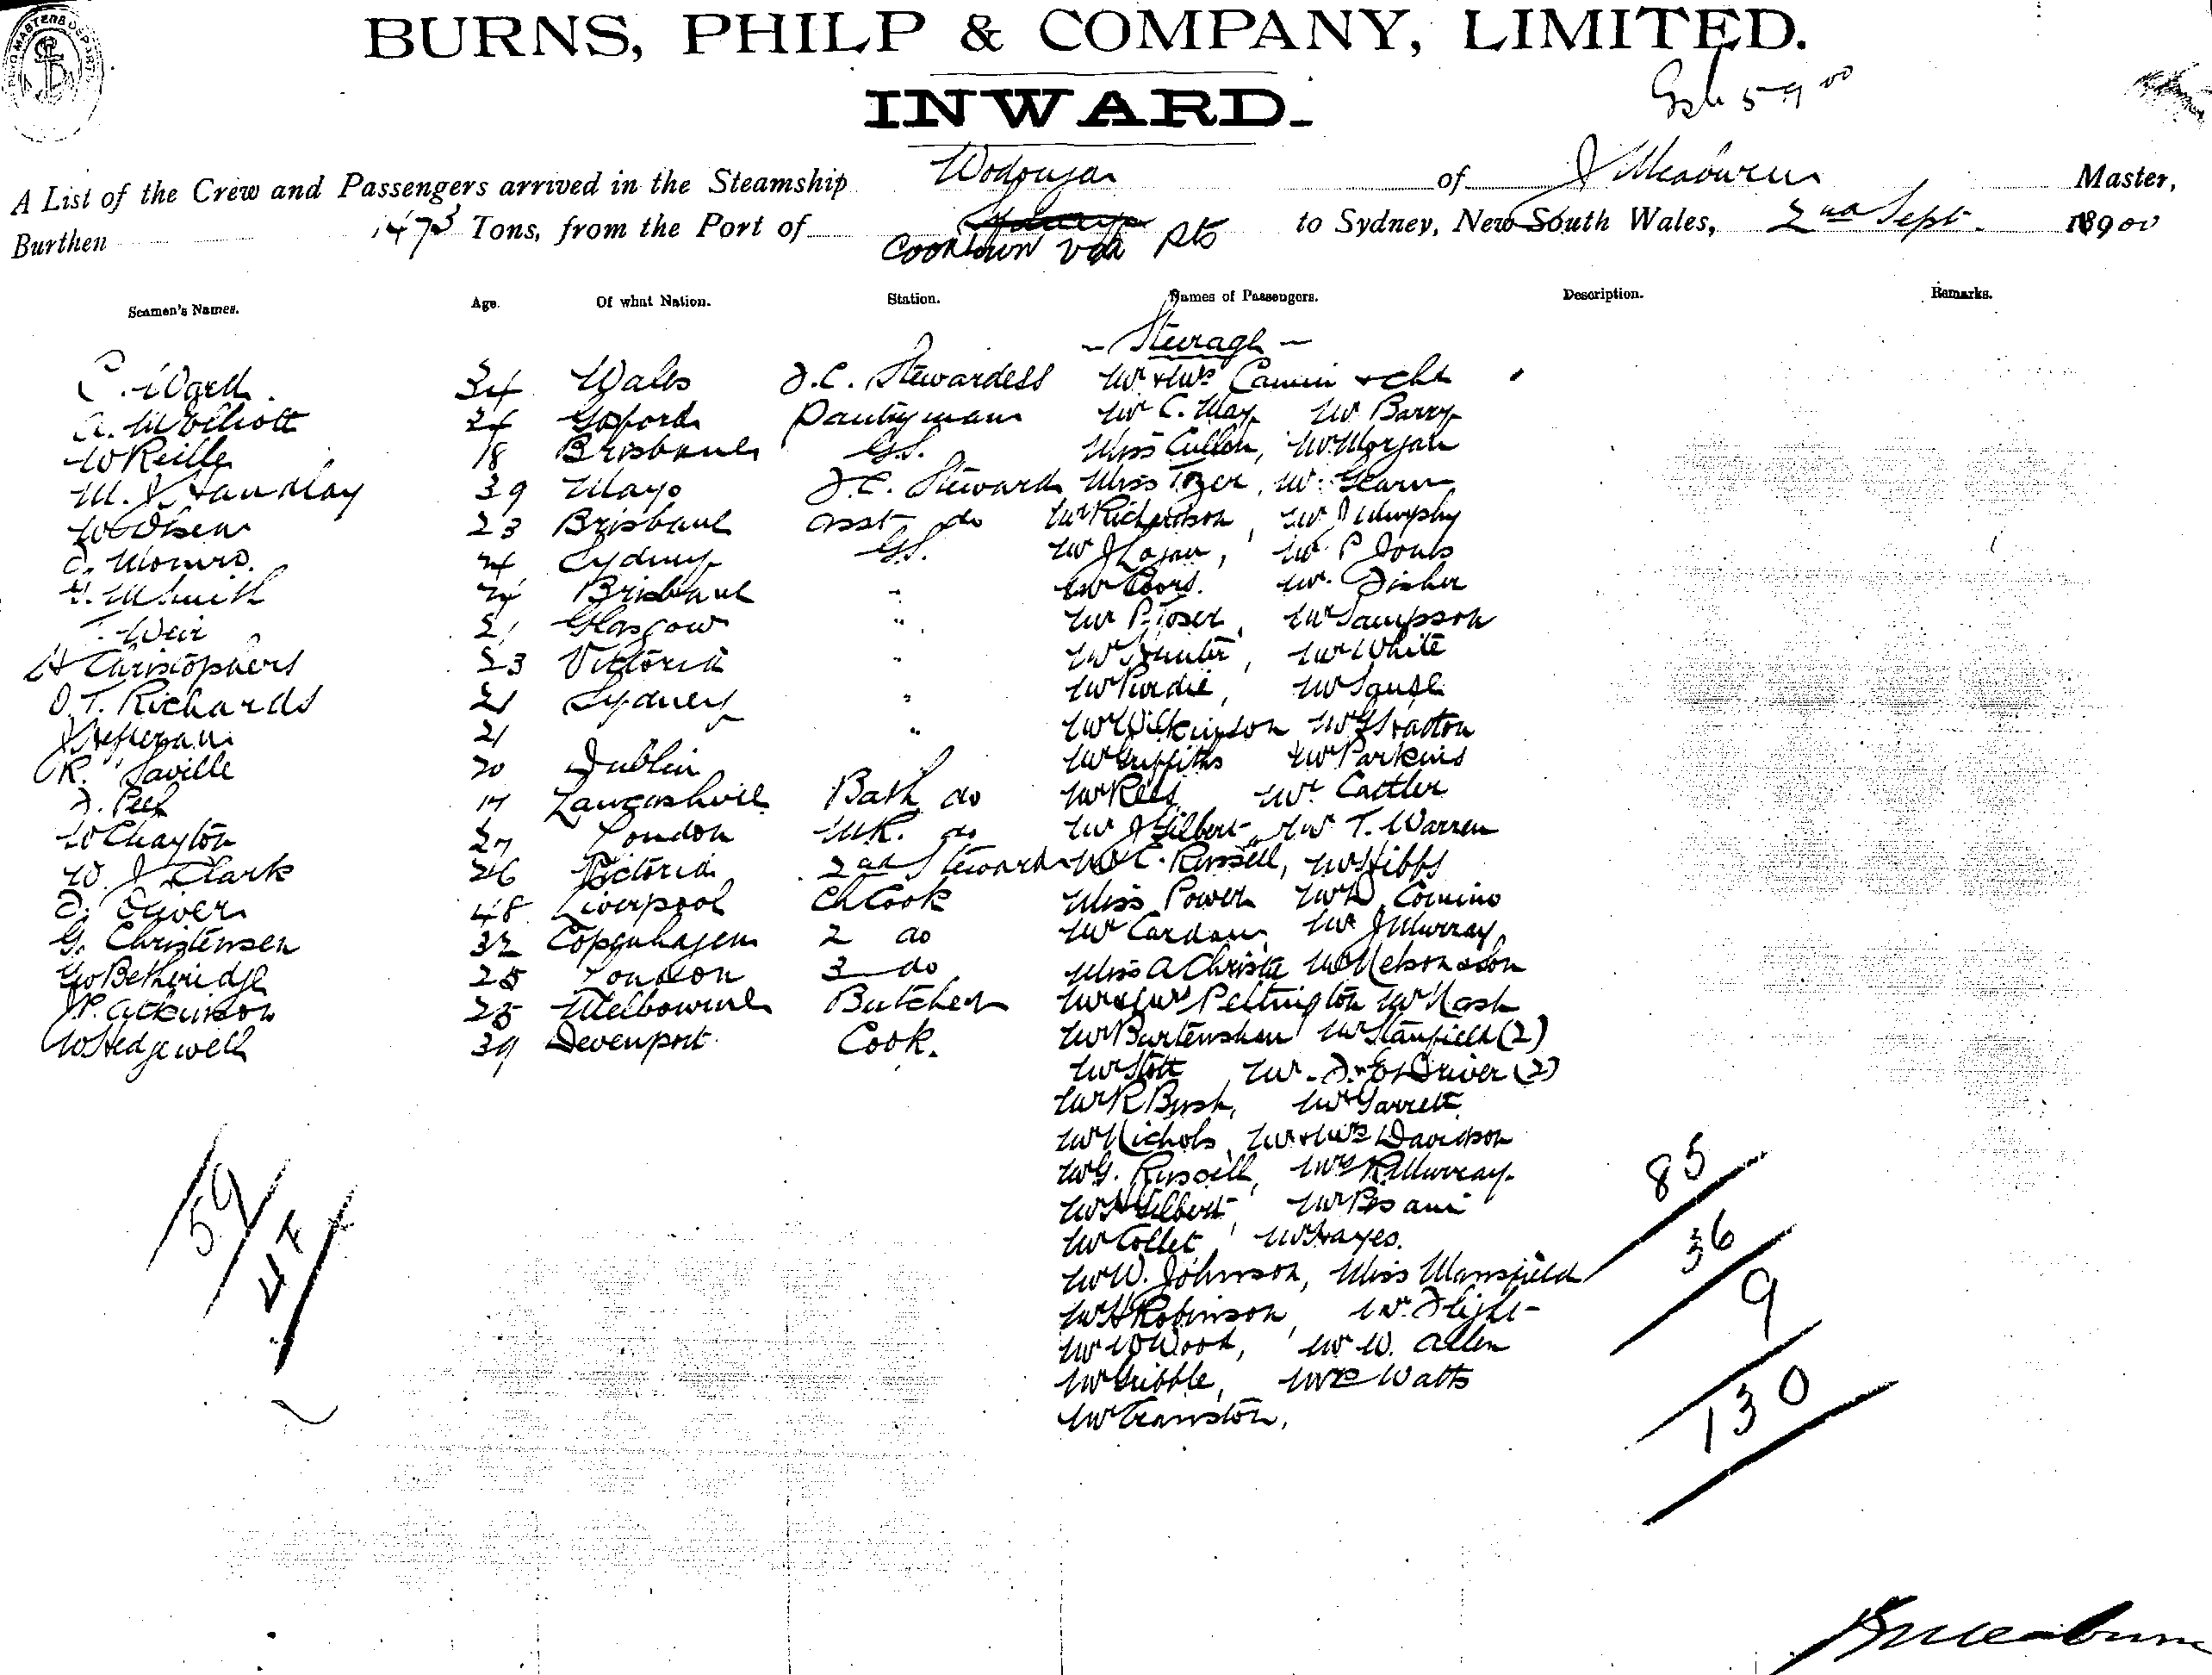 BURNS, PHILP & COMPANY, LIMITED.
INWARD.
59 00
A List of the Crew and Passengers arrived in the Steamship Wodonga of J Meaburn Master,
Burthen 1473 Tons, from the Port of Cooktown via Pts to Sydney, New South Wales, 2nd Sept. 1900
Seamen's Names. Age. Of what Nation. Station. Names of Passengers. Description. Remarks.
- Steerage -
C. Ward 34 Wales F.C. Stewardess Mr & Mrs & chd
A. McElliott 24 Gosford Pantryman Mr C. May Mr Barry
W Reilly 18 Brisbane G.S. Miss Cullen, Mr Morgan
M. J Handlay 39 Mayo F.C. Steward Miss Tozer, Mr
W Olsen 23 Brisbane Asst do Mr Richardson, Mr J Murphy
Munro. 24 Sydney G.S. Mr J Logan, Mr P Jones
24 Brisbane " Mr Coors. Mr Fisher
T. Weir 21 Glasgow " Mr P Toser, Mr Sampson
H Christophers 23 Victoria " Mr Hunter, Mr White
D. T. Richards 21 Sydney " Mr Purdie, Mr
J Heffernan 21 " Mr Wilkinson Mr G Stratton
R. Saville 20 Dublin Mr Griffiths Mr Parkins
F. Peel 17 Lancashire Bath do Mr Rees Mr Cattler
W Chayton 27 London M.R. do Mr J Gilbert, Mr T. Warren
W. J Clark 26 Victoria 2nd Steward Mr C. Russell, Mr Hibbs
Oliver 48 Liverpool Ch Cook Miss Power Mr D. Comino
G. Christensen 32 Copenhagen 2 do Mr Cardow Mr J Murray,
Geo Betheridge 28 London 3 do Miss A Christie Mr Nelson & son
J P. Atkinson 25 Melbourne Butcher Mr & Mrs Peltington Mr Nash
W Hedgewell 39 Devenport Cook. Mr Burtenshaw Mr Stanfield (2)
Mr Stott, Mr. F. & E. Driver (2)
Mr R Bush, Mr Garrett
Mr Nichols, Mr & Mrs Davidson
Mr G. Russell, Mrs R Murray
Mr H Gilbert, Mr Pisani
Mr Collet, Mr Hayes.
Mr W. Johnson, Miss Mansfield
Mr H Robinson, Mr. Flight
Mr W Wood, Mr W. Allen
Mr Gribble, Mr C Watts
Mr Cranston,
59
47
85
36
9
130
J Meaburn